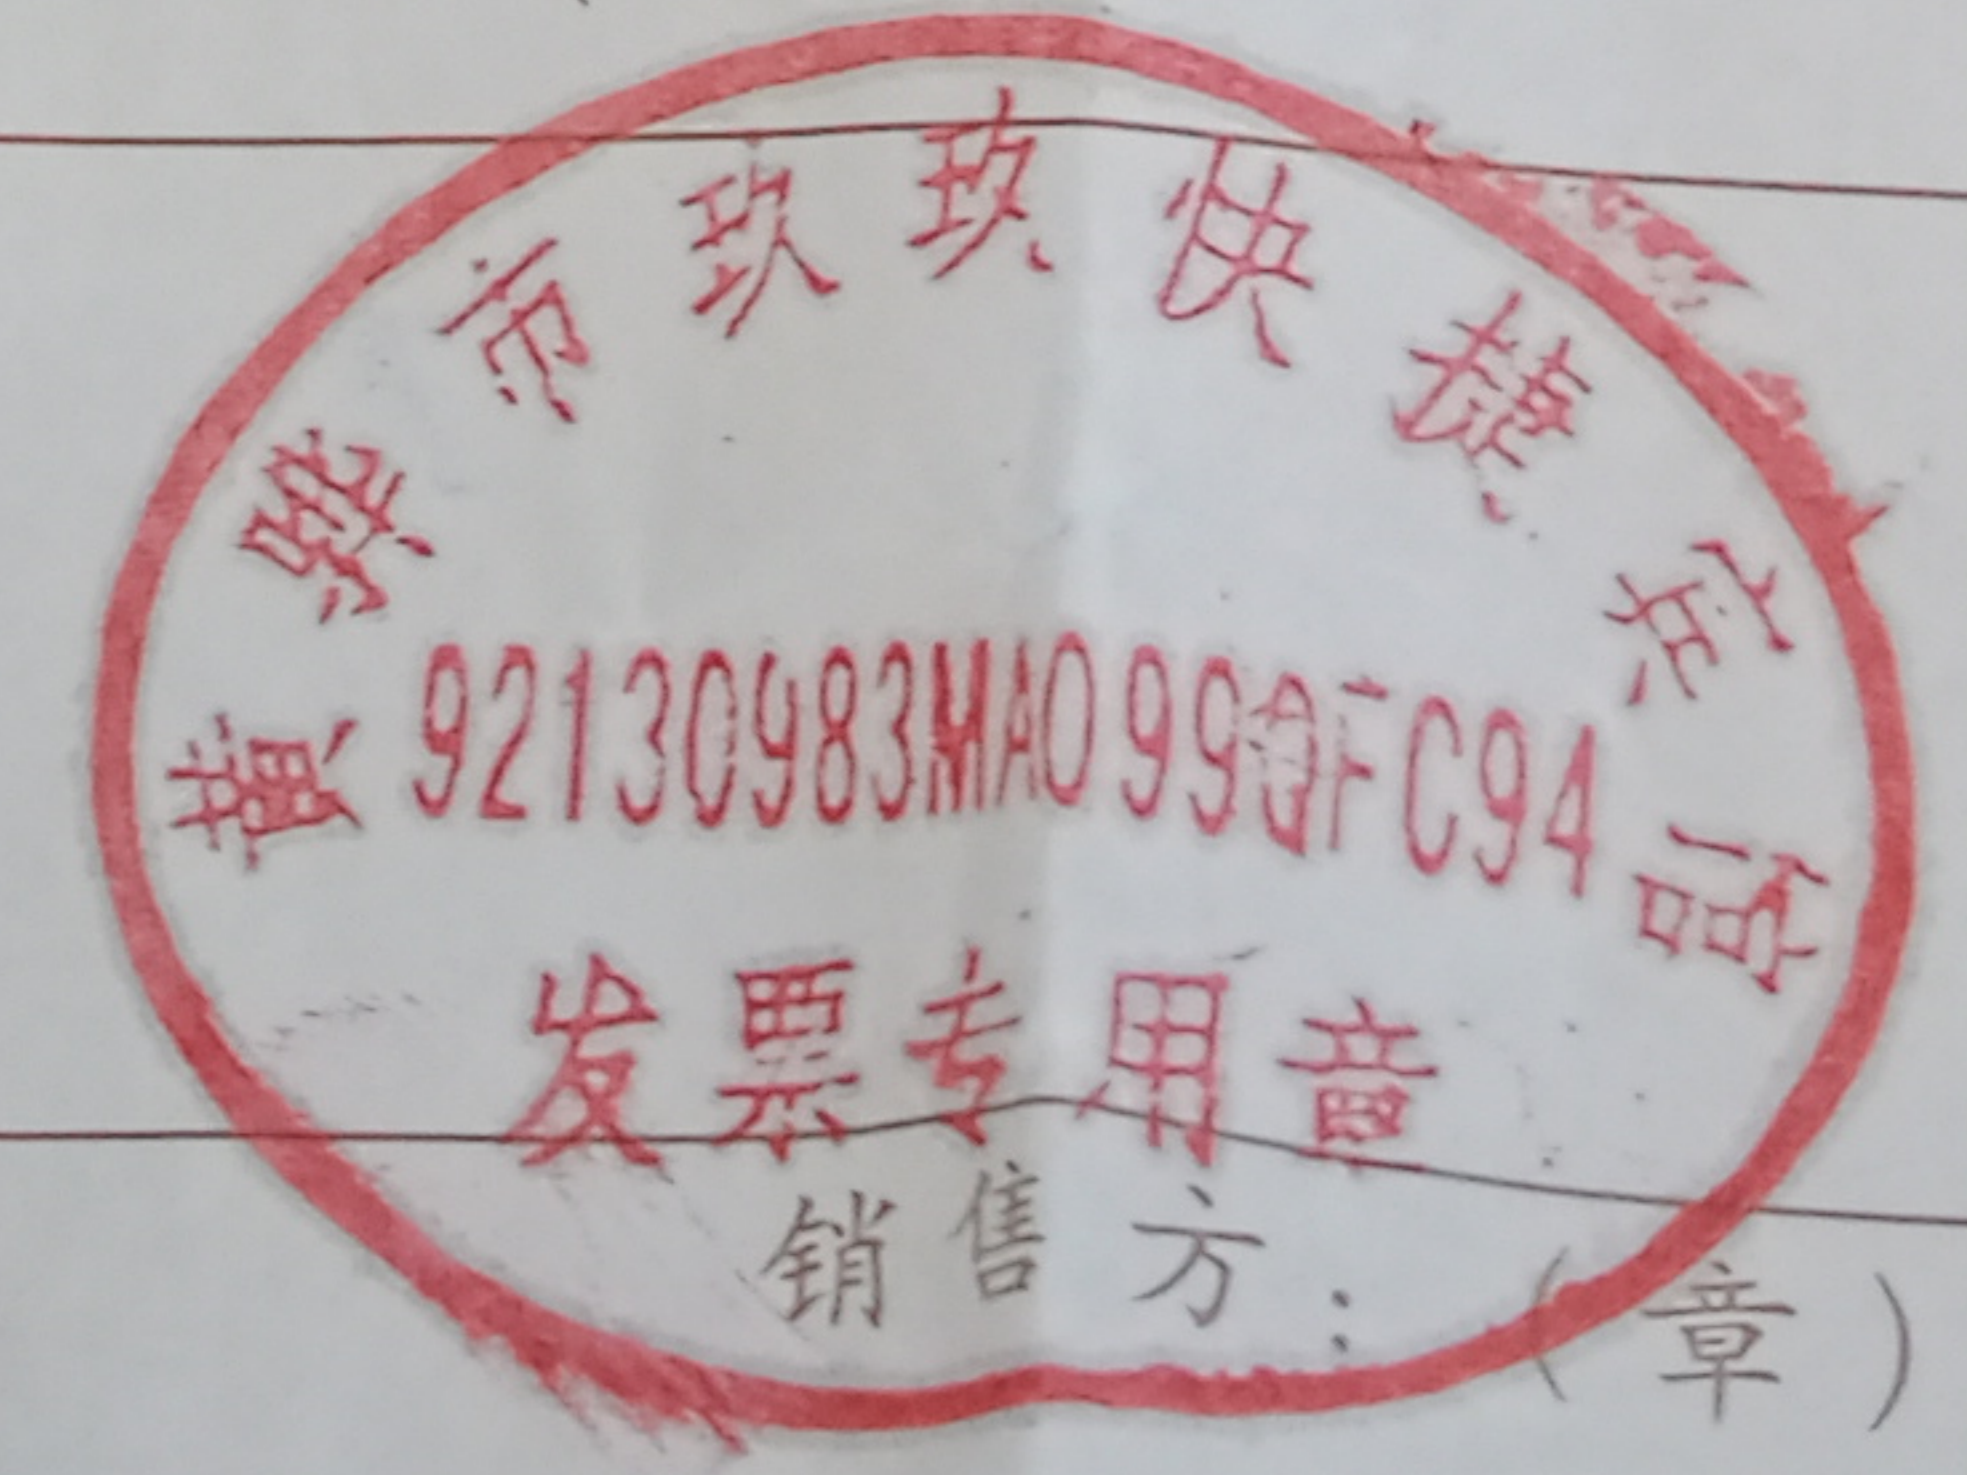 黄骅市玖玖快捷宾馆
92130983MA099QFC94
发票专用章
销售方：（章）